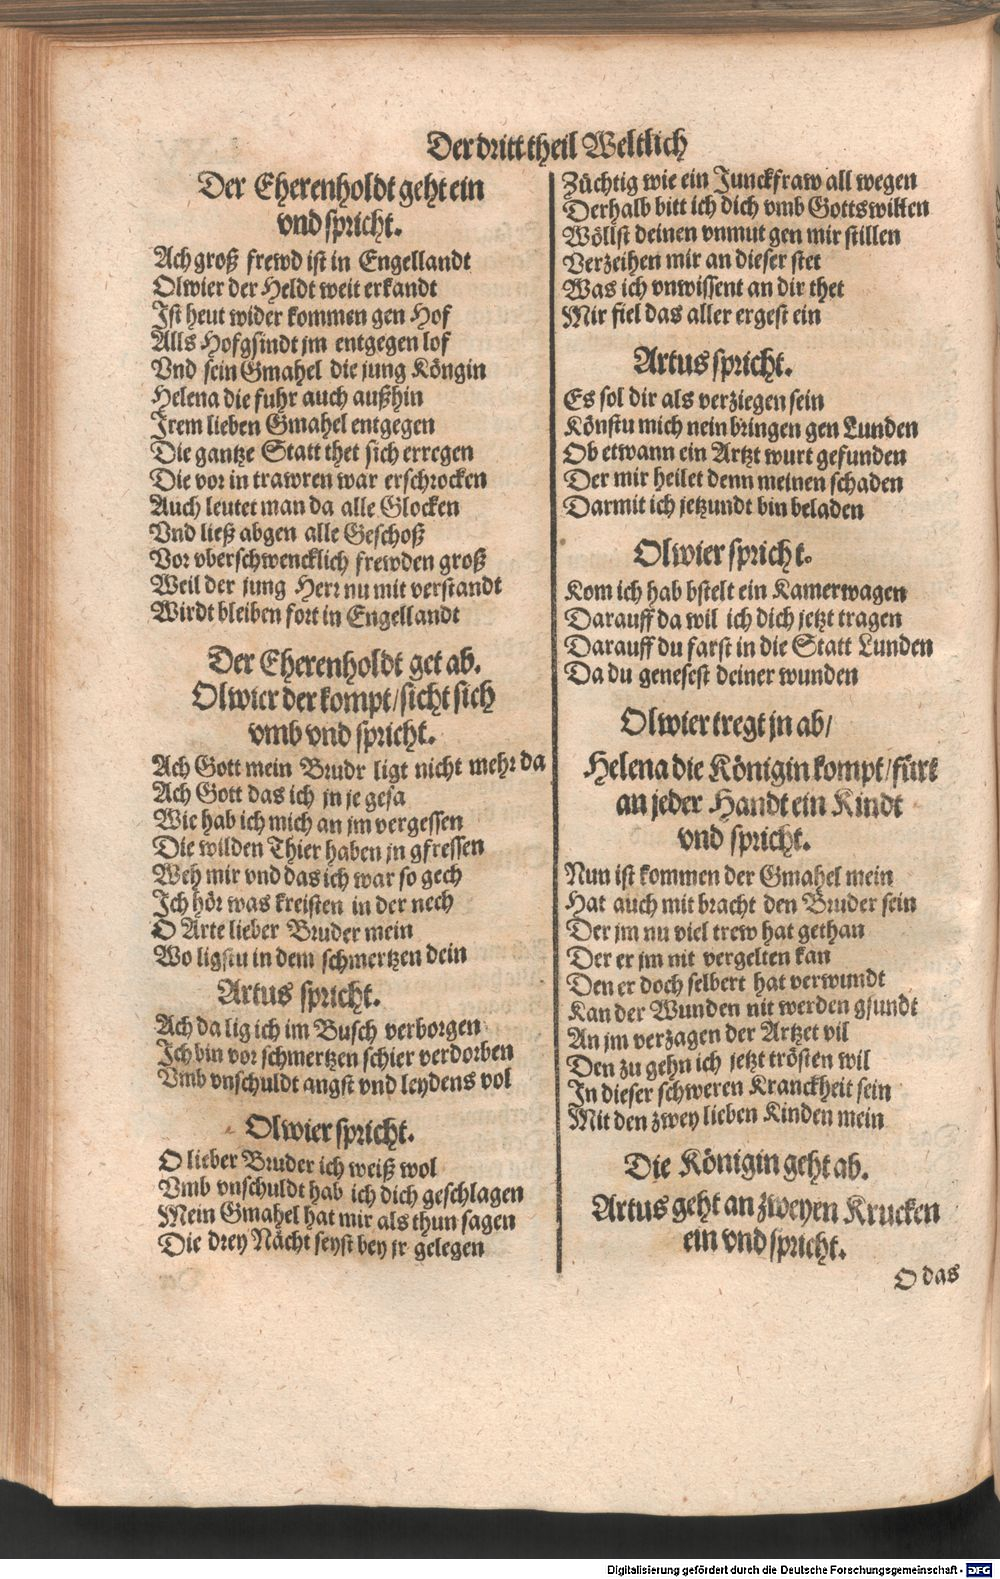 Der dritt theil Weltlich
Der Eherenholdt geht ein
vnd spricht.
Ach groß frewd ist in Engellandt
Olwier der Heldt weit erkandt
Ist heut wider kommen gen Hof
Alls Hofgsindt jm entgegen lof
Vnd sein Gmahel die jung Köngin
Helena die fuhr auch außhin
Irem lieben Gmahel entgegen
Die gantze Statt thet sich erregen
Die vor in trawren war erschrocken
Auch leutet man da alle Glocken
Vnd ließ abgen alle Geschoß
Vor vberschwencklich frewden groß
Weil der jung Herr nu mit verstandt
Wirdt bleiben fort in Engellandt
Der Eherenholdt get ab.
Olwier der kompt/sicht sich
vmb vnd spricht.
Ach Gott mein Brudr ligt nicht mehr da
Ach Gott das ich jn je gesa
Wie hab ich mich an jm vergessen
Die wilden Thier haben jn gfressen
Weh mir vnd das ich war so gech
Ich hör was kreisten in der nech
O Arte lieber Bruder mein
Wo ligstu in dem schmertzen dein
Artus spricht.
Ach da lig ich im Busch verborgen
Ich bin vor schmertzen schier verdorben
Vmb vnschuldt angst vnd leydens vol
Olwier spricht.
O lieber Bruder ich weiß wol
Vmb vnschuldt hab ich dich geschlagen
Mein Gmahel hat mir als thun sagen
Die drey Nächt seyst bey jr gelegen
Züchtig wie ein Junckfraw all wegen
Derhalb bitt ich dich vmb Gotts willen
Wöllst deinen vnmut gen mir stillen
Verzeihen mir an dieser stet
Was ich vnwissent an dir thet
Mir fiel das aller ergest ein
Artus spricht.
Es sol dir als verziegen sein
Könstu mich nein bringen gen Lunden
Ob etwann ein Artzt wurt gefunden
Der mir heilet denn meinen schaden
Darmit ich jetzundt bin beladen
Olwier spricht.
Kom ich hab bstelt ein Kamerwagen
Darauff da wil ich dich jetzt tragen
Darauff du farst in die Statt Lunden
Da du genesest deiner wunden
Olwier tregt jn ab/
Helena die Königin kompt/fürt
an jeder Handt ein Kindt
vnd spricht.
Nun ist kommen der Gmahel mein
Hat auch mit bracht den Bruder sein
Der jm nu viel trew hat gethan
Der er jm nit vergelten kan
Den er doch selbert hat verwundt
Kan der Wunden nit werden gsundt
An jm verzagen der Artzet vil
Den zu gehn ich jetzt trösten wil
In dieser schweren Kranckheit sein
Mit den zwey lieben Kinden mein
Die Königin geht ab.
Artus geht an zweyen Krucken
ein vnd spricht.
O das
Digitalisierung gefördert durch die Deutsche Forschungsgemeinschaft - DFG